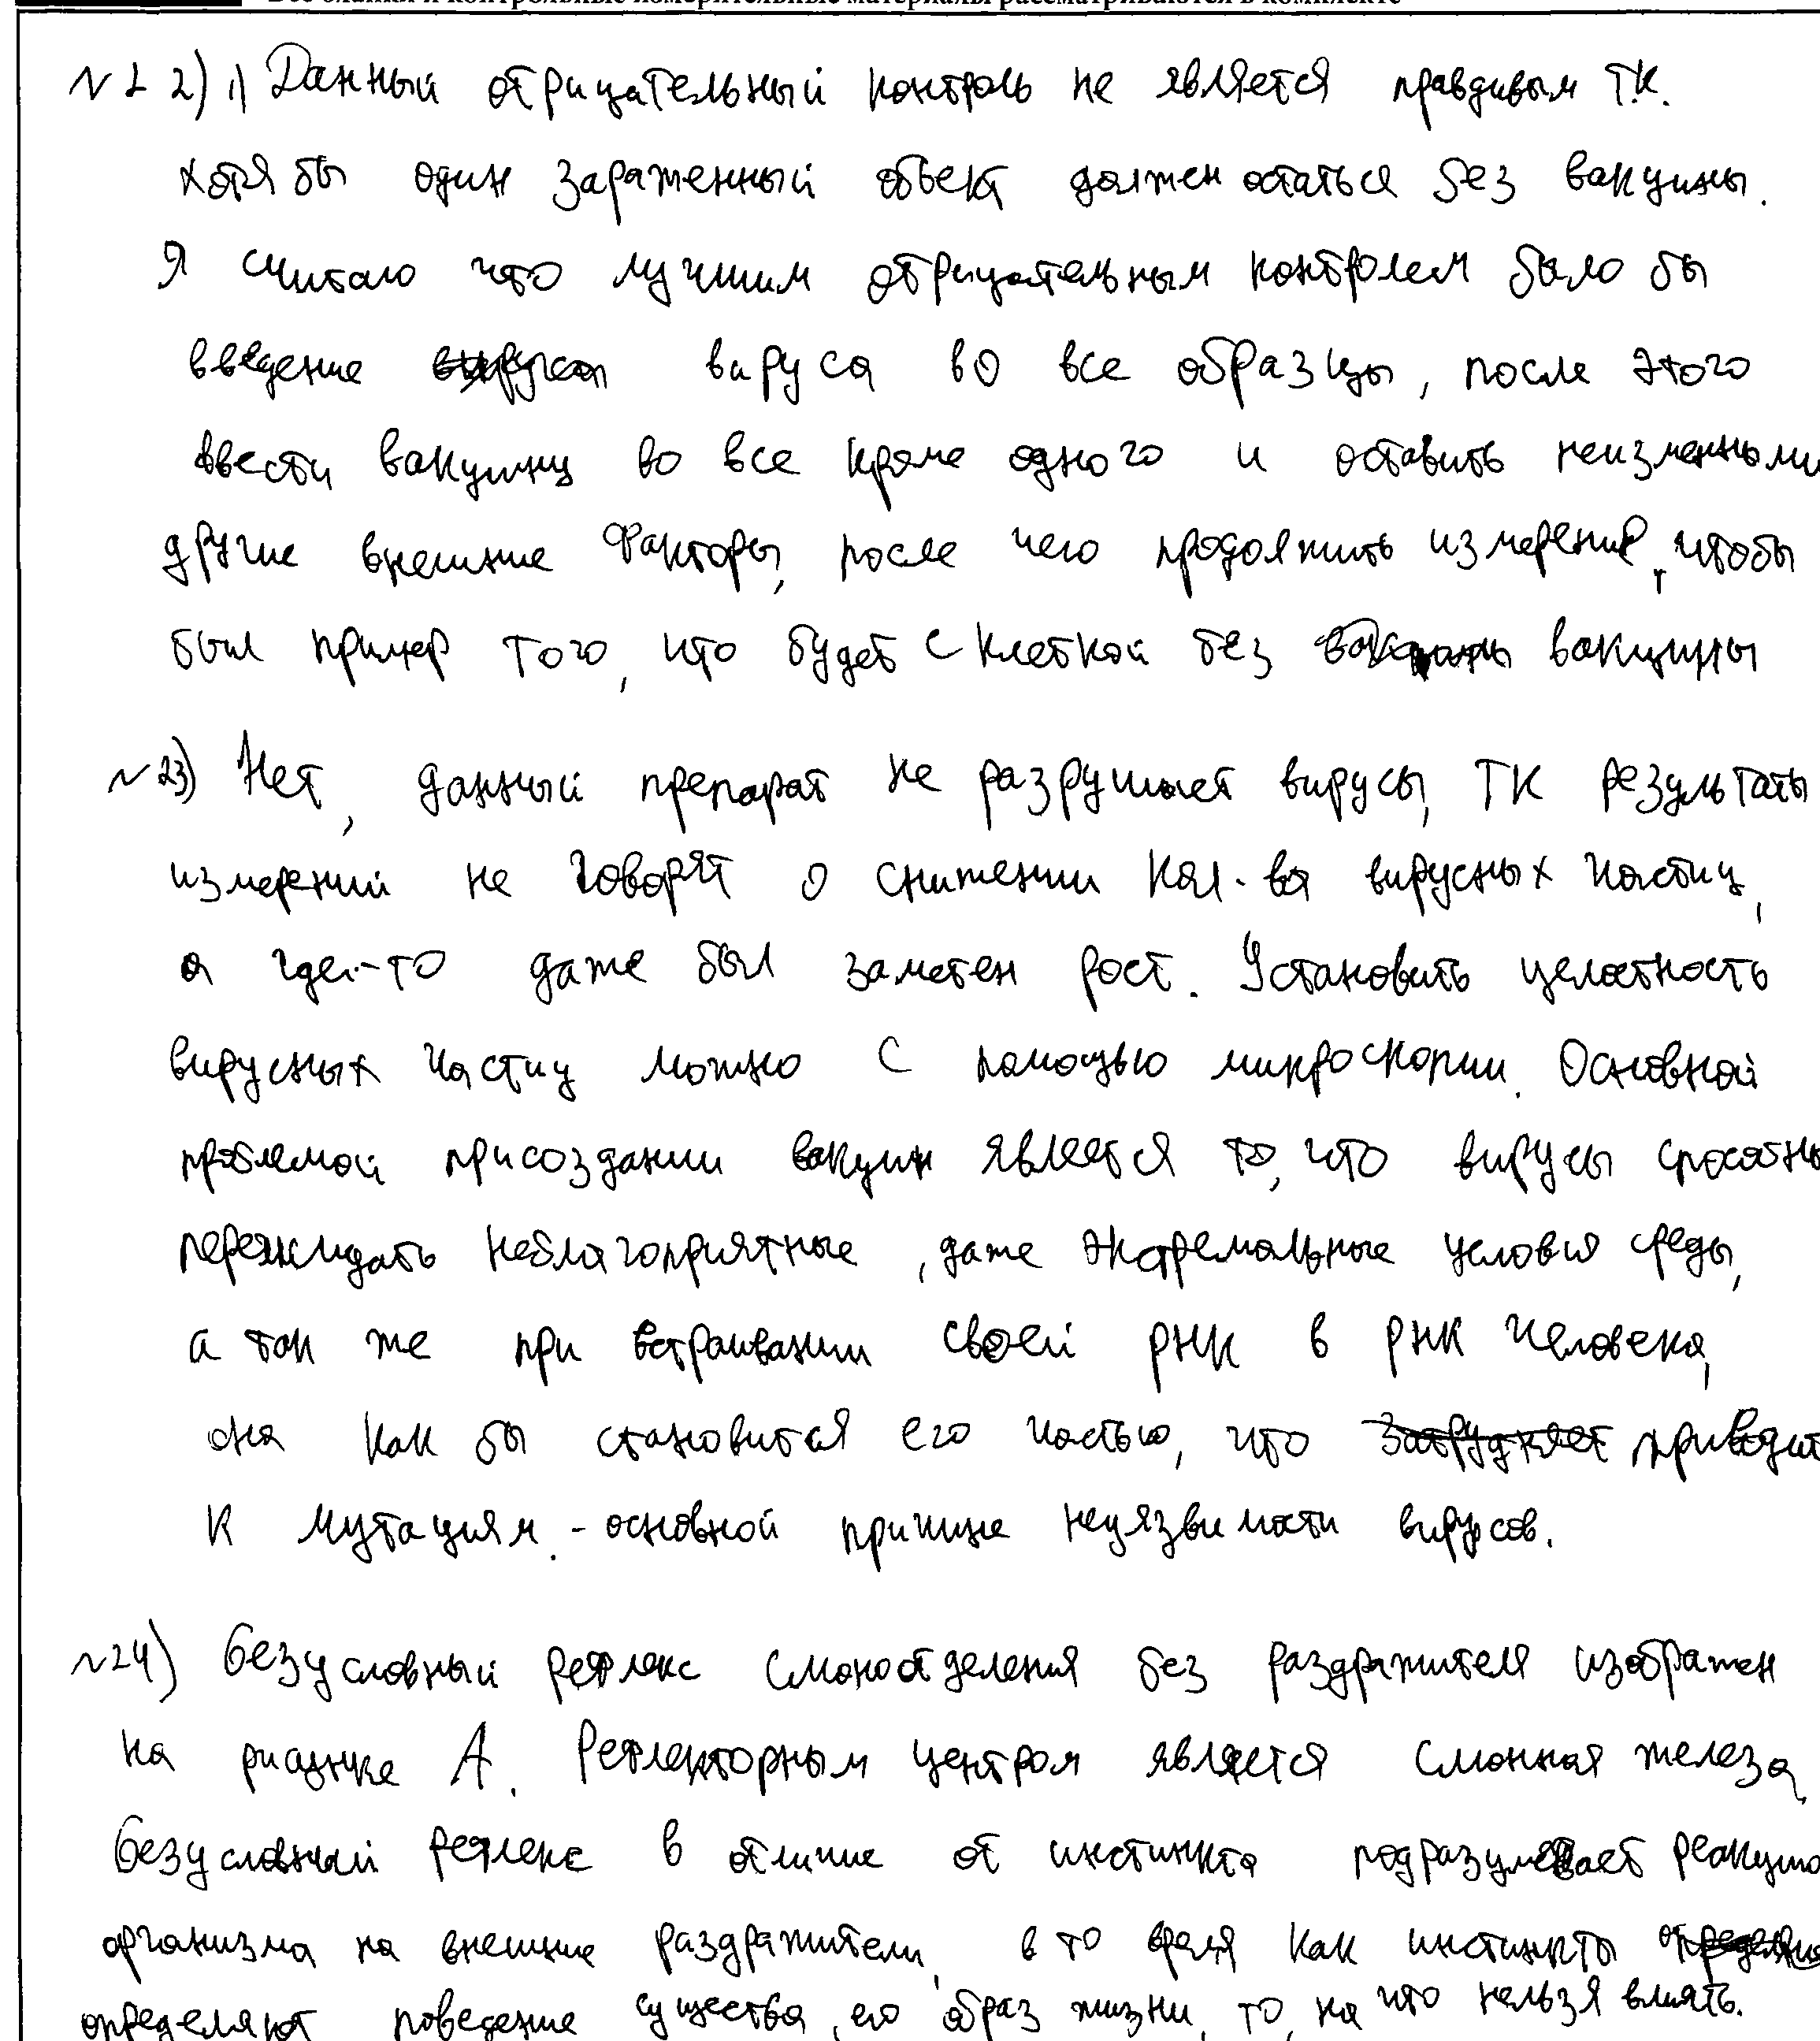 Все бланки и контрольные измерительные материалы рассматриваются в комплекте
№ 22) 1) Данный отрицательный контроль не является правдивым т.к.
хотя бы один зараженный объект должен остаться без вакцины.
Я считаю что лучшим отрицательным контролем было бы
введение вируса во все образцы, после этого
ввести вакцину во все кроме одного и оставить неизменными
другие внешние факторы, после чего продолжить измерения, чтобы
был пример того, что будет с клеткой без вакцины
№23) Нет, данный препарат не разрушает вирусы, тк результаты
измерений не говорят о снижении кол-ва вирусных частиц,
а где-то даже был заметен рост. Установить целостность
вирусных частиц можно с помощью микроскопии. Основной
проблемой при создании вакцин является то, что вирусы способны
пережидать неблагоприятные, даже экстремальные условия среды,
а так же при встраивании своей РНК в РНК человека,
она как бы становится его частью, что приводит
к мутациям. - основной причине неуязвимости вирусов.
№24) Безусловный рефлекс слюноотделения без раздражителя изображен
на рисунке А. Рефлекторным центром является слюнная железа.
Безусловный рефлекс в отличие от инстинкта подразумевает реакцию
организма на внешние раздражители, в то время как инстинкты
определяют поведение существа, его образ жизни, то, на что нельзя влиять.